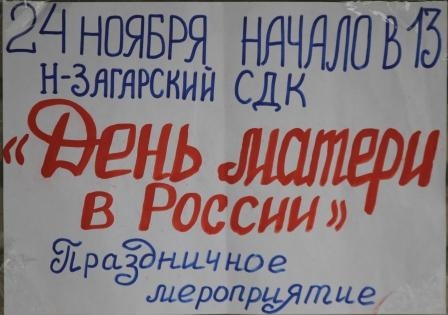 24 НОЯБРЯ НАЧАЛО В 13
Н-ЗАГАРСКИЙ СДК
«День матери
в России»
Праздничное
мероприятие